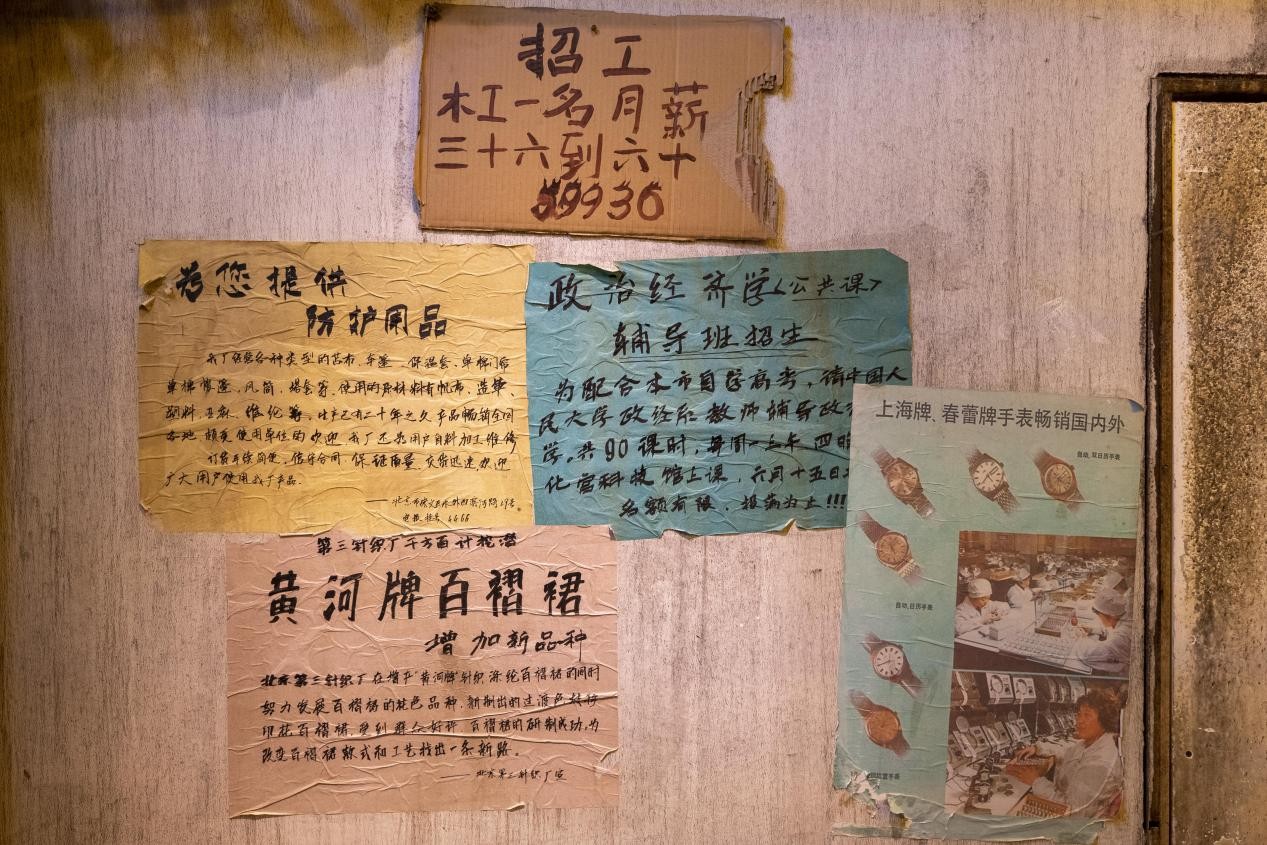 招工
木工一名月薪
三十六到六十
59936
为您提供
防护用品
我厂经营各种类型的苫布、车篷、保温套、单棉门帘
单棉帐篷、风筒、塔套等,使用的原材料有帆布、造革、
塑料、玉秋、维纶等,生产已有二十年之久产品畅销全国
各地 颇受使用单位的欢迎 我厂还承用户自料加工维修
订货手续简便,信守合同,保证质量,交货迅速欢迎
广大用户使用我厂产品。
电报挂号 6466
政治经济学<公共课>
辅导班招生
为配合本市自学高考,请中国人
民大学政经系教师辅导政
学。共90课时,每周一三午四时
化宫科技馆上课,六月十五日
名额有限,报满为止!!!
第三针织厂千方百计挖潜
黄河牌百褶裙
增加新品种
北京第三针织厂在增产"黄河牌"针织涤纶百褶裙的同时
努力发展百褶裙的花色品种,新制出的过渡色
印花百褶裙,受到群众好评,百褶裙的研制成功,为
改变百褶裙款式和工艺找出一条新路。
——北京第三针织厂宣
上海牌、春蕾牌手表畅销国内外
自动、双日历手表
自动、日历手表